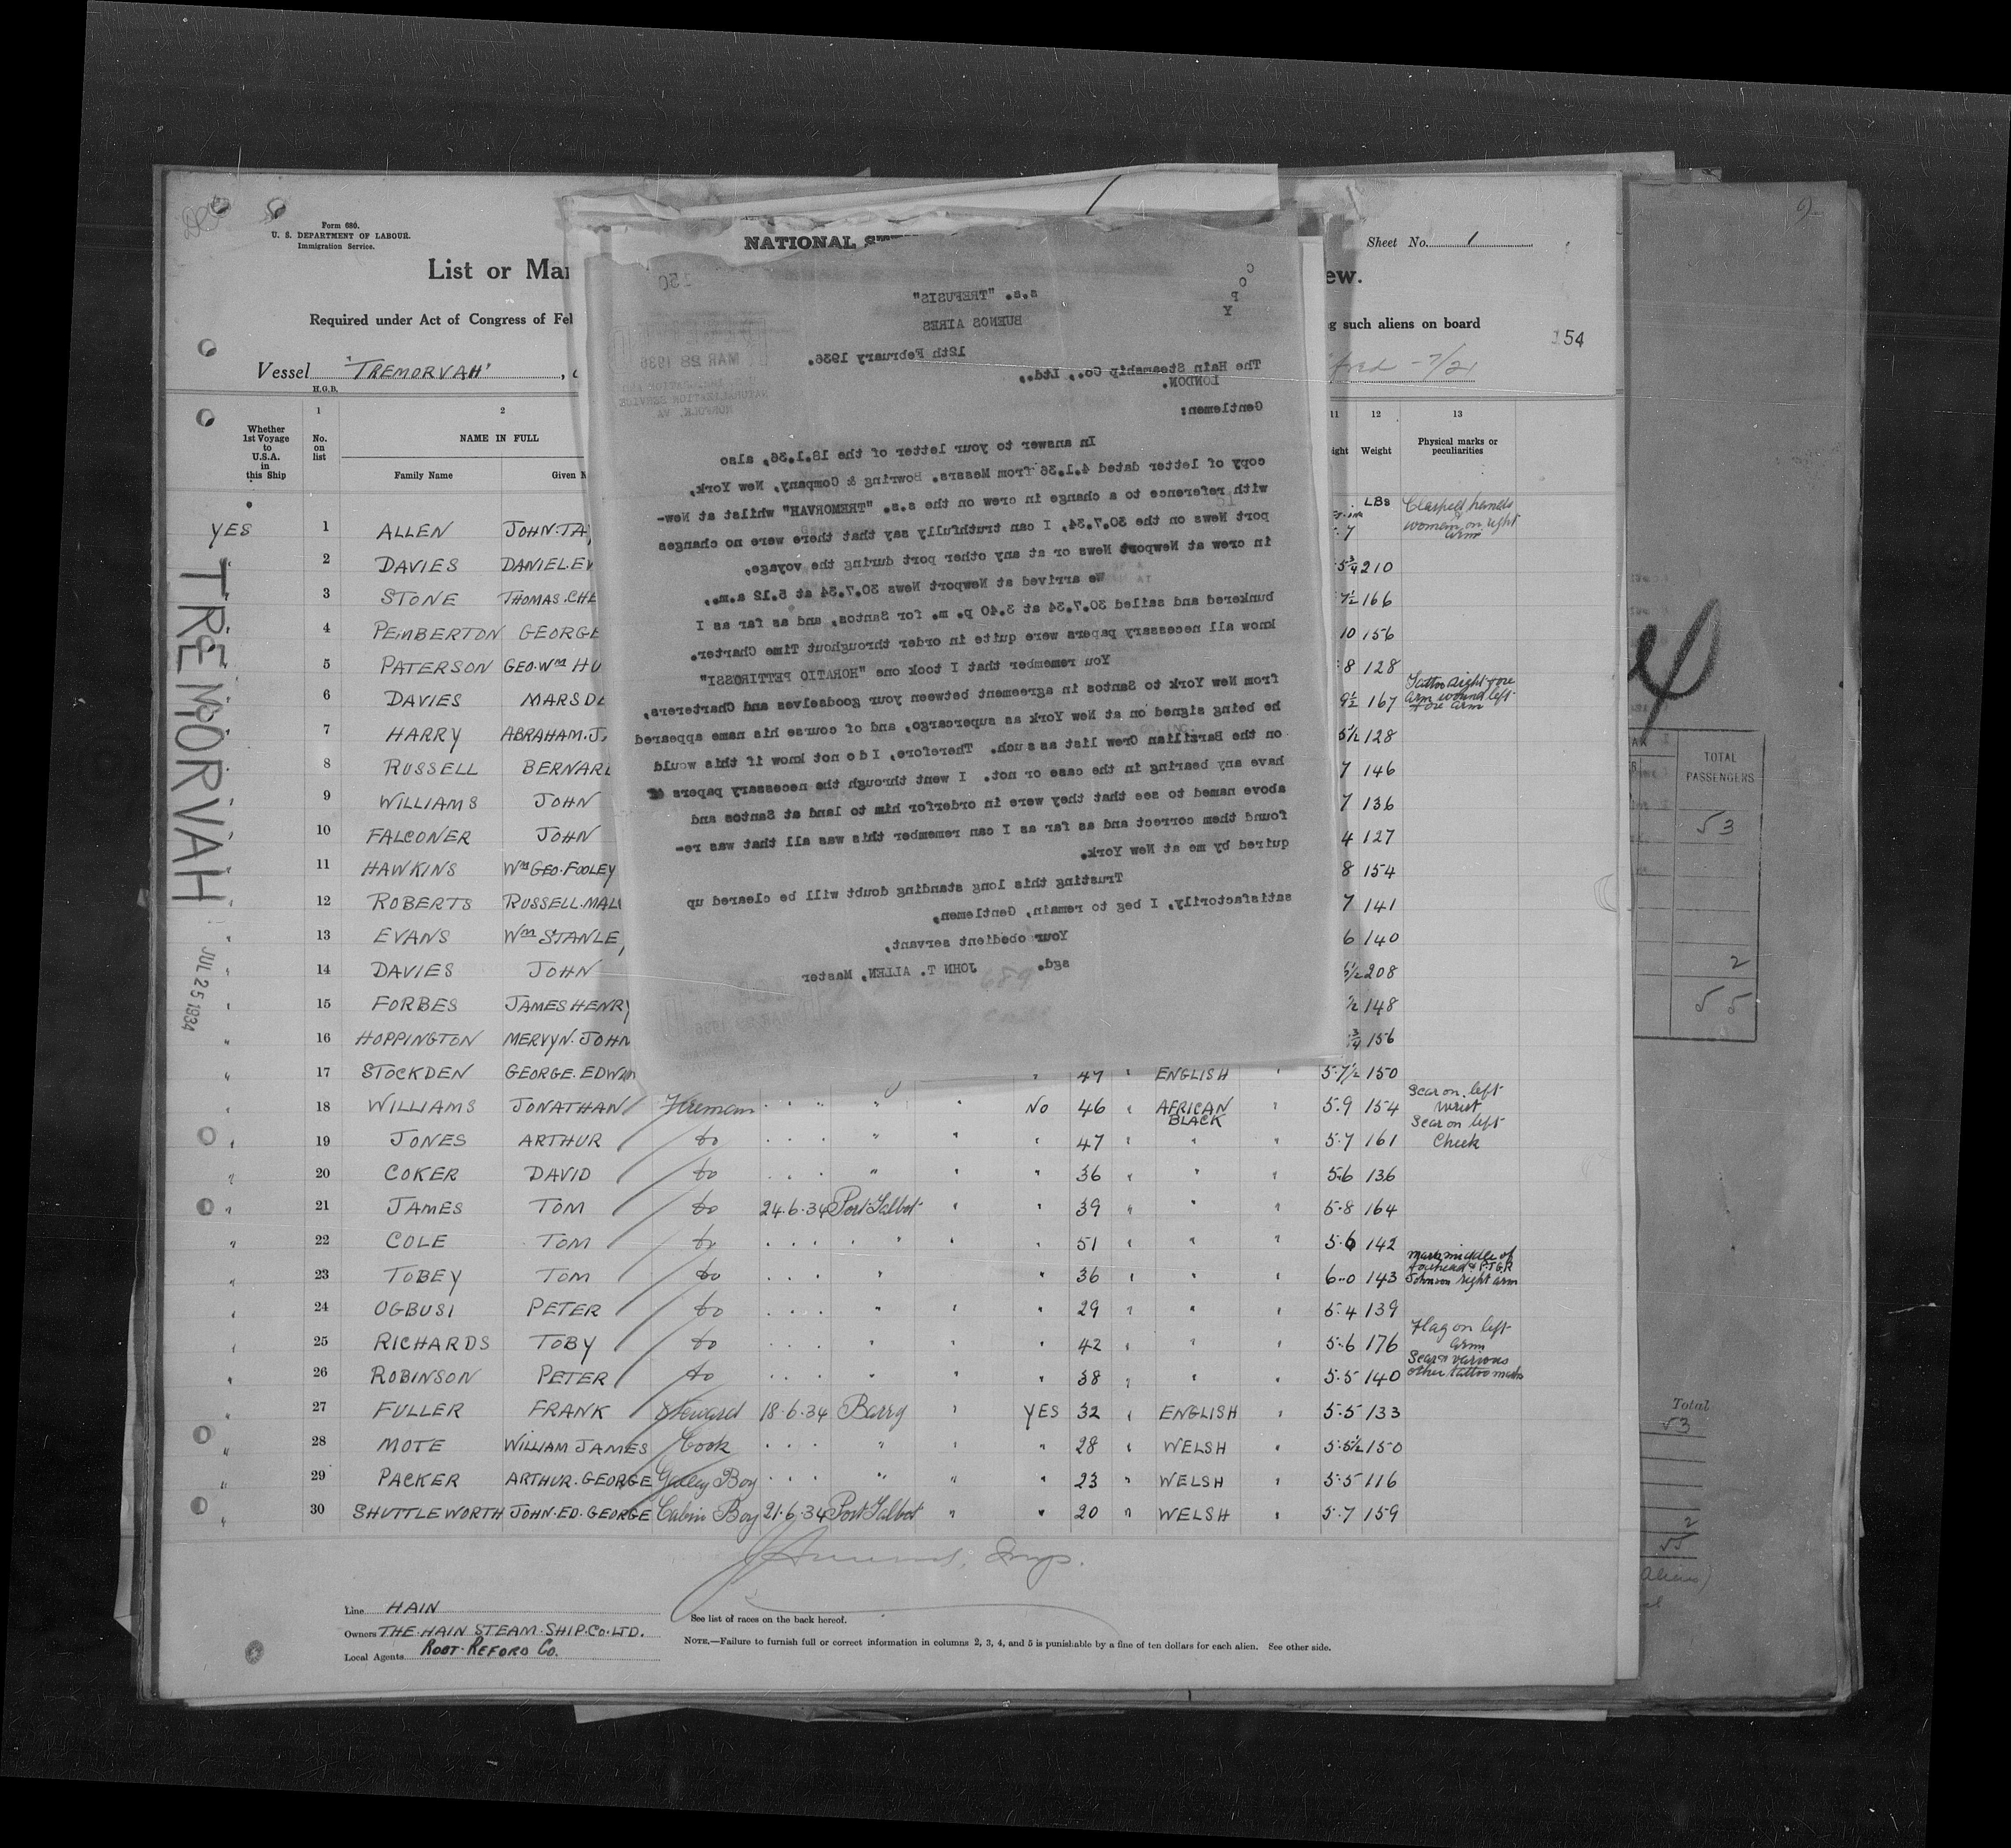 Form 680.
U. S. DEPARTMENT OF LABOUR.
Immigration Service.
List or
Required under Act of Congress of
Vessel "TREMORVAH"
H.G.B.
NATIONAL
Sheet No. 1
such aliens on board
154
Whether 1st Voyage to U.S.A. in this Ship
1 No. on list
2 NAME IN FULL
Family Name
11
12 Weight
13 Physical marks or peculiarities
LBs
TREMORVAH
JUL 25 1934
C
O
P
Y
s.s. "TREFUSIS"
BUENOS AIRES
12th February 1936.
MAR 28 1936
The Hain Steamship Co., Ltd.,
LONDON.
Gentlemen:
In answer to your letter of the 18.1.36, also
copy of letter dated 4.1.36 from Messrs. Bowring & Company, New York,
with reference to a change in crew on the s.s. "TREMORVAH" whilst at New-
port News on the 30.7.34, I can truthfully say that there were no changes
in crew at Newport News or at any other port during the voyage,
We arrived at Newport News 30.7.34 at 5.12 a.m.,
bunkered and sailed 30.7.34 at 3.40 p. m. for Santos, and as far as I
know all necessary papers were quite in order throughout Time Charter.
You remember that I took one "HORATIO PETTIROSSI"
from New York to Santos in agreement between your goodselves and Charterers,
he being signed on at New York as supercargo, and of course his name appeared
on the Barzilian Crew list as such. Therefore, I do not know if this would
have any bearing in the case or not. I went through the necessary papers of
above named to see that they were in orderfor him to land at Santos and
found them correct and as far as I can remember this was all that was re-
quired by me at New York.
Trusting this long standing doubt will be cleared up
satisfactorily, I beg to remain, Gentlemen,
Your obedient servant,
sgd. JOHN T. ALLEN, Master
YES 1 ALLEN Clasped hands women on right arm
2 DAVIES 210
3 STONE 166
4 PEMBERTON GEORGE 10 156
5 PATERSON GEO. Wm 8 128
6 DAVIES 9½ 167
7 HARRY ABRAHAM. 5½ 128
8 RUSSELL 7 146
9 WILLIAMS JOHN 7 136
10 FALCONER JOHN 4 127
11 HAWKINS Wm GEO. FOOLEY 8 154
12 ROBERTS RUSSELL. 7 141
13 EVANS Wm 6 140
14 DAVIES JOHN 208
15 FORBES JAMES HENRY 148
16 HOPPINGTON MERVYN. JOHN 156
17 STOCKDEN GEORGE. 47 " ENGLISH " 5·7½ 150
18 WILLIAMS JONATHAN Fireman " " " No 46 " AFRICAN BLACK " 5·9 154 Scar on left wrist
19 JONES ARTHUR do " " " " 47 " " " 5·7 161 Scar on left Cheek
20 COKER DAVID do " " " " 36 " " " 5·6 136
21 JAMES TOM do 24·6·34 Port Talbot " " 39 " " " 5·8 164
22 COLE TOM do " " " " 51 " " " 5·6 142
23 TOBEY TOM do " " " 36 " " " 6-0 143
24 OGBUSI PETER do " " " " 29 " " " 5·4 139
25 RICHARDS TOBY do " " " " 42 " " " 5·6 176 Flag on left arm
26 ROBINSON PETER do " " " " 38 " " " 5·5 140 Scar & various other tattoo marks
27 FULLER FRANK Steward 18·6·34 Barry " YES 32 " ENGLISH " 5·5 133
28 MOTE WILLIAM JAMES Cook " " " " 28 " WELSH " 5·5½ 150
29 PACKER ARTHUR. GEORGE Galley Boy " " " " 23 " WELSH " 5·5 116
30 SHUTTLEWORTH JOHN. ED. GEORGE Cabin Boy 21·6·34 Port Talbot " " 20 " WELSH " 5·7 159
Line HAIN
Owners THE HAIN STEAM. SHIP. Co. LTD.
Local Agents
See list of races on the back hereof.
NOTE.—Failure to furnish full or correct information in columns 2, 3, 4, and 5 is punishable by a fine of ten dollars for each alien. See other side.
TOTAL PASSENGERS
53
2
55
Total
53
2
55